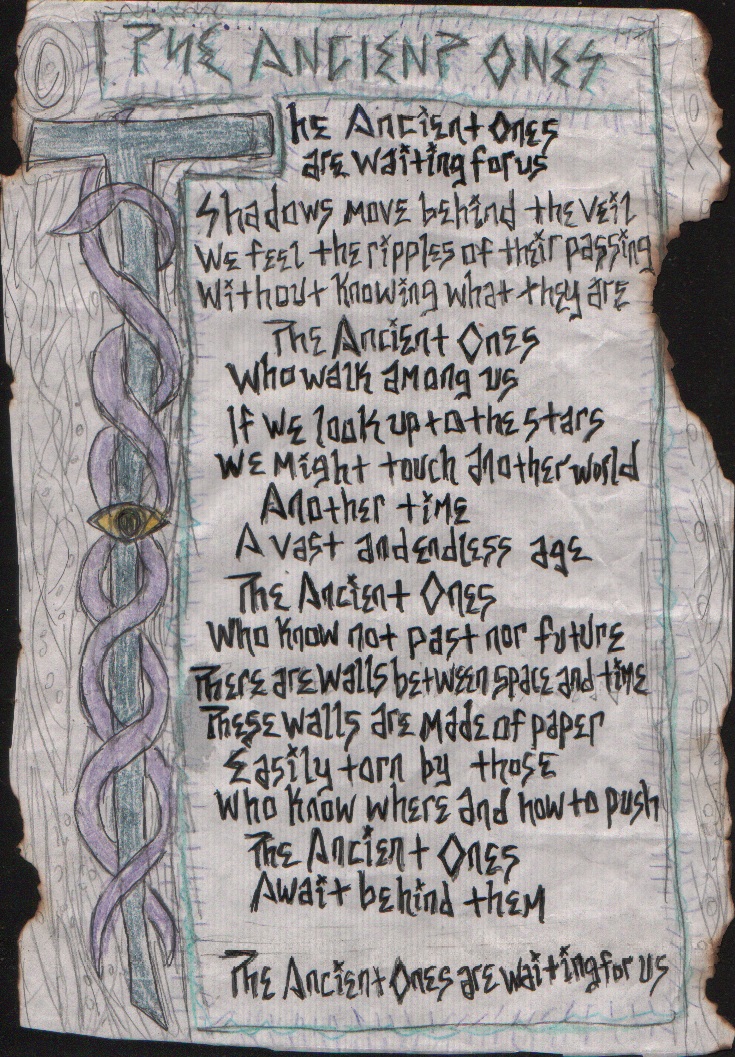 THE ANCIENT ONES
The Ancient Ones
are waiting for us
Shadows move behind the veil
We feel the ripples of their passing
Without knowing what they are
The Ancient Ones
Who walk among us
If we look up to the stars
We might touch another world
Another time
A vast and endless age
The Ancient Ones
Who know not past nor future
There are walls between space and time
These walls are made of paper
Easily torn by those
Who know where and how to push
The Ancient Ones
Await behind them
The Ancient Ones are waiting for us